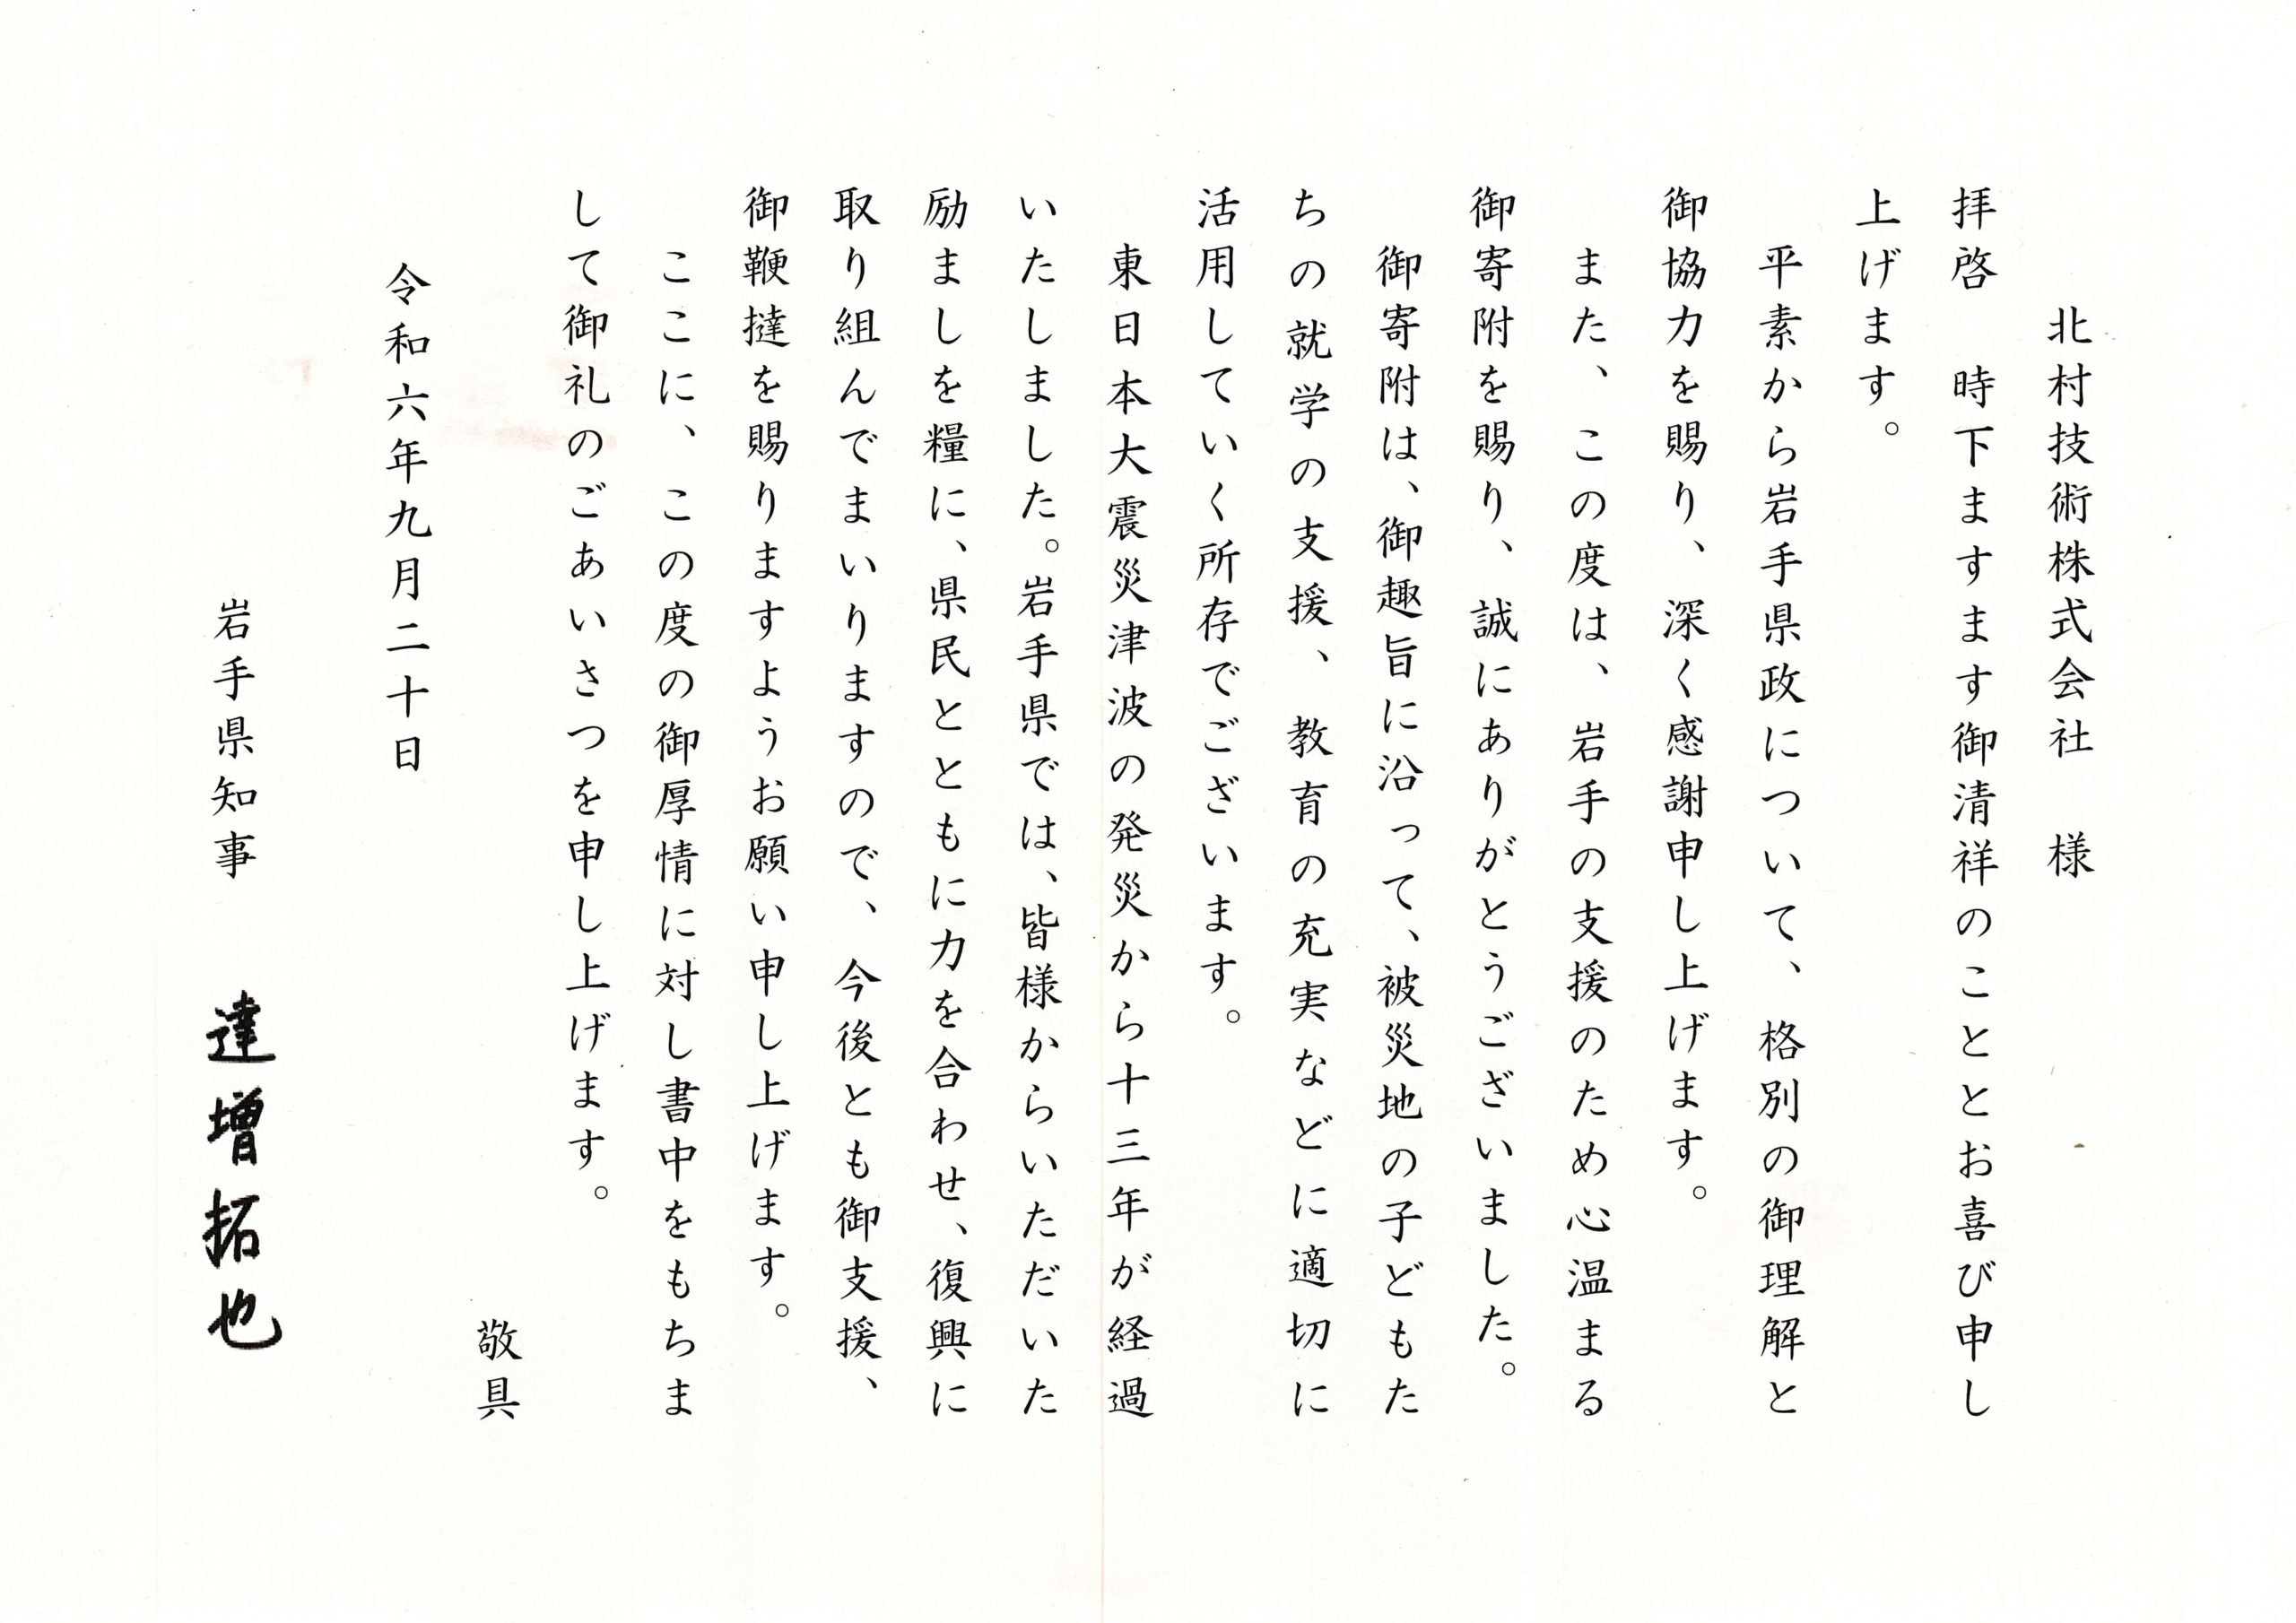 北村技術株式会社　様
拝啓　時下ますます御清祥のこととお喜び申し
上げます。
平素から岩手県政について、格別の御理解と
御協力を賜り、深く感謝申し上げます。
また、この度は、岩手の支援のため心温まる
御寄附を賜り、誠にありがとうございました。
御寄附は、御趣旨に沿って、被災地の子どもた
ちの就学の支援、教育の充実などに適切に
活用していく所存でございます。
東日本大震災津波の発災から十三年が経過
いたしました。岩手県では、皆様からいただいた
励ましを糧に、県民とともに力を合わせ、復興に
取り組んでまいりますので、今後とも御支援、
御鞭撻を賜りますようお願い申し上げます。
ここに、この度の御厚情に対し書中をもちま
して御礼のごあいさつを申し上げます。
敬具
令和六年九月二十日
岩手県知事　達増拓也